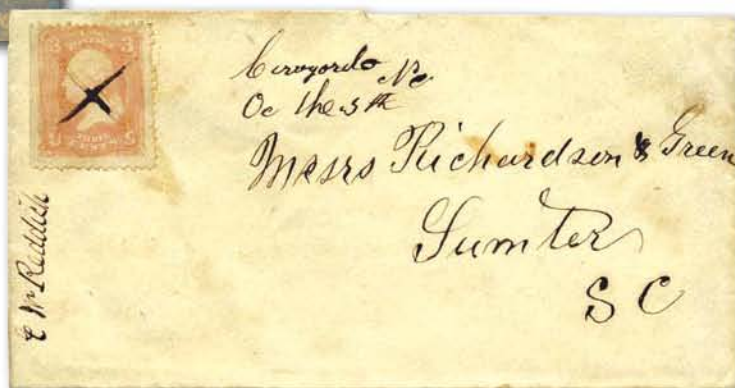 3 3
U THREE S
CENTS
Cerogordo Nc
Oc the 5th
Messrs Richardson & Green
Sumter
S C
Reddish